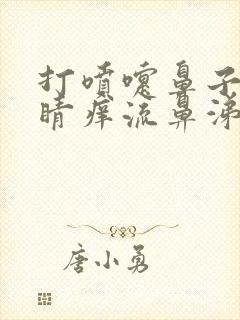 打喷嚏鼻子
睛痒流鼻涕
唐小勇